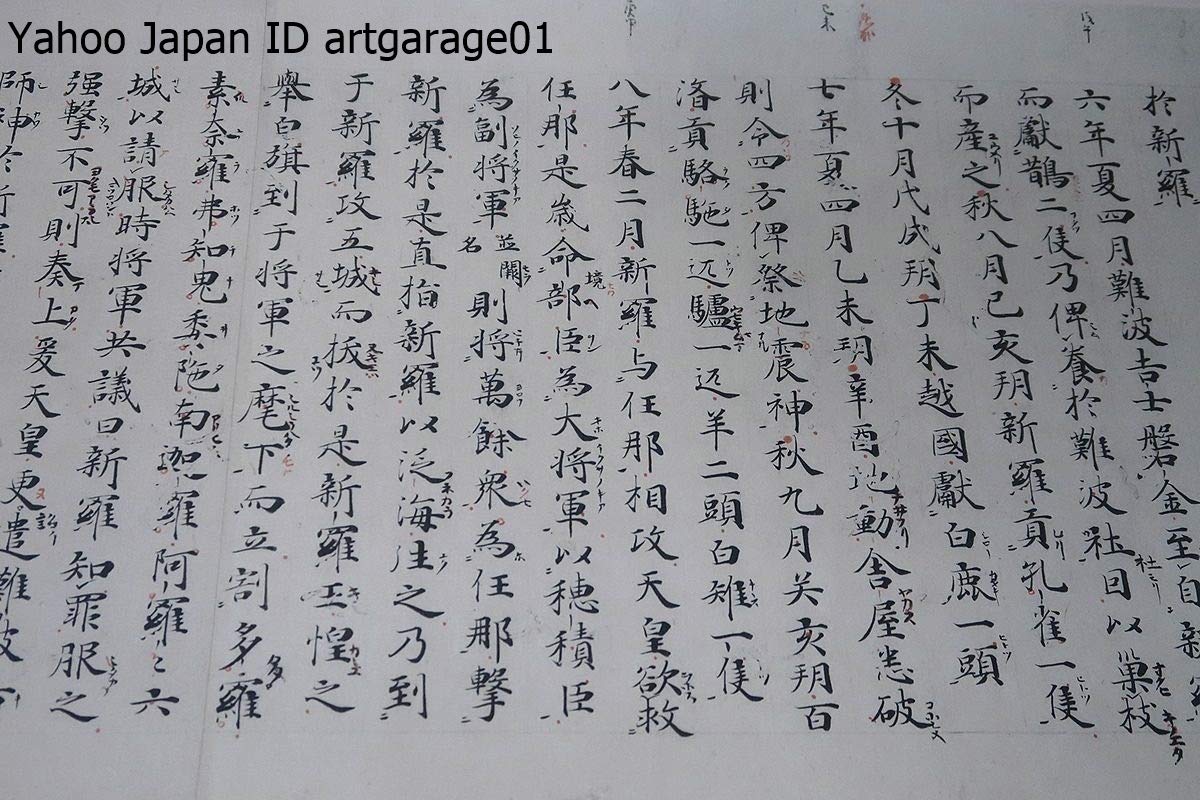 Yahoo Japan ID artgarage01
戊午
己未
庚申
於新羅
六年夏四月難波吉士磐金至自新羅
而獻鵲二隻乃俾養於難波社因以巢枝
而産之秋八月己亥朔新羅貢孔雀一隻
冬十月戊戌朔丁未越國獻白鹿一頭
七年夏四月乙未朔辛酉地動舍屋悉破
則令四方俾祭地震神秋九月癸亥朔百
濟貢駱駞一疋驢一疋羊二頭白雉一隻
八年春二月新羅与任那相攻天皇欲救
任那是歲命境部臣為大將軍以穗積臣
為副將軍並闕名則將萬餘衆為任那擊
新羅於是直指新羅以泛海往之乃到
于新羅攻五城而拔於是新羅王惶之
舉白旗到于將軍之麾下而立割多羅
素奈羅弗知鬼委陁南迦羅阿羅々六
城以請服時將軍共議曰新羅知罪服之
强擊不可則奏上爰天皇更遣難波
師神於新羅